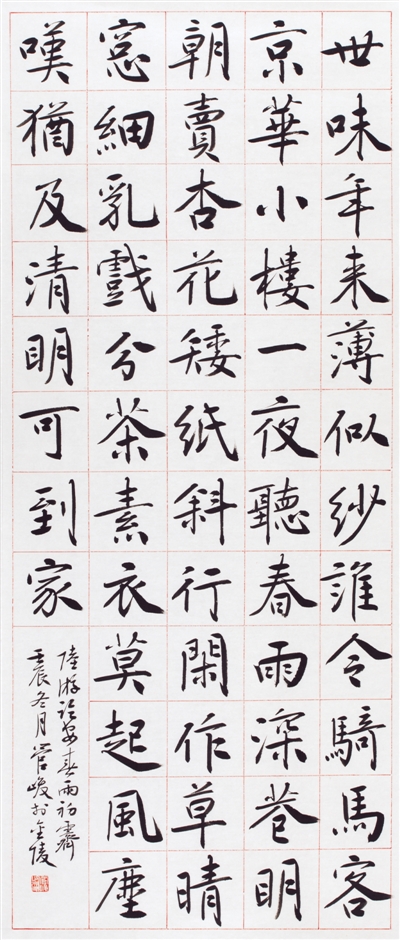 世味年来薄似紗誰令騎馬客
京華小樓一夜聽春雨深巷明
朝賣杏花矮紙斜行閑作草晴
窓細乳戲分茶素衣莫起風塵
嘆猶及清明可到家
陸游臨安春雨初霽
壬辰冬月管峻於金陵